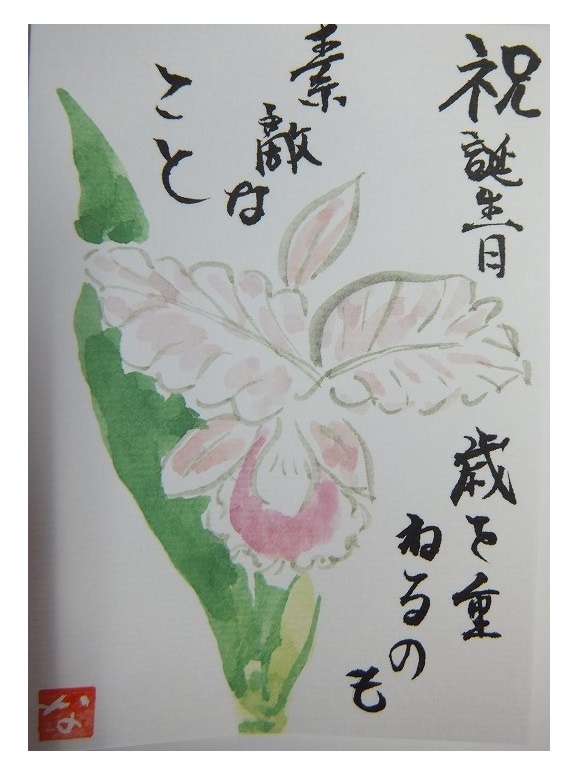 祝誕生日
歳を重
ねるの
も
素
敵
な
こと
な